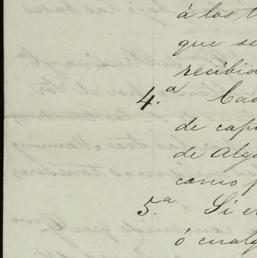 á los t
que se
recibid
4.ª Cad
de cap
de Alg
como p
5.ª Si e
ó cualq